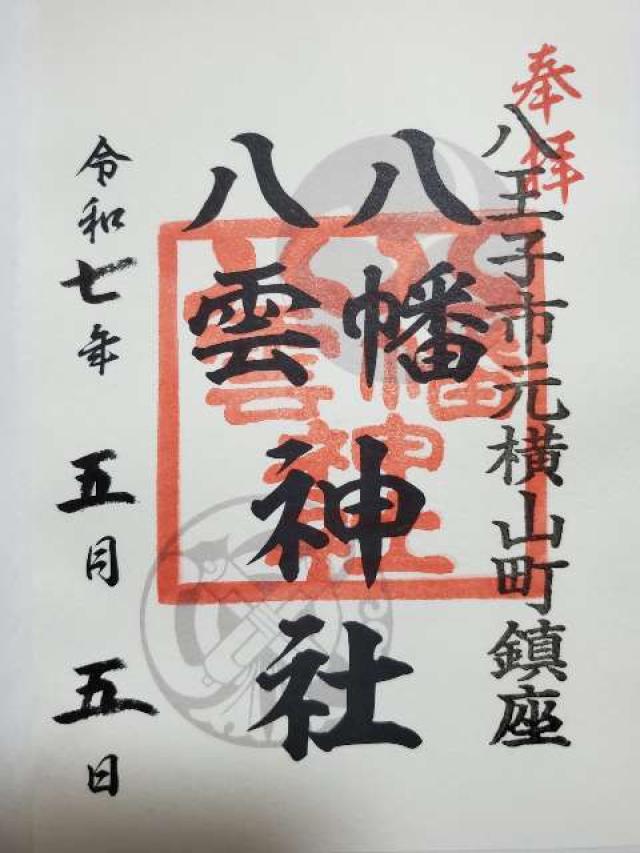 奉拝
八王子市元横山町鎮座
八幡
八雲
神社
令和七年 五月 五日